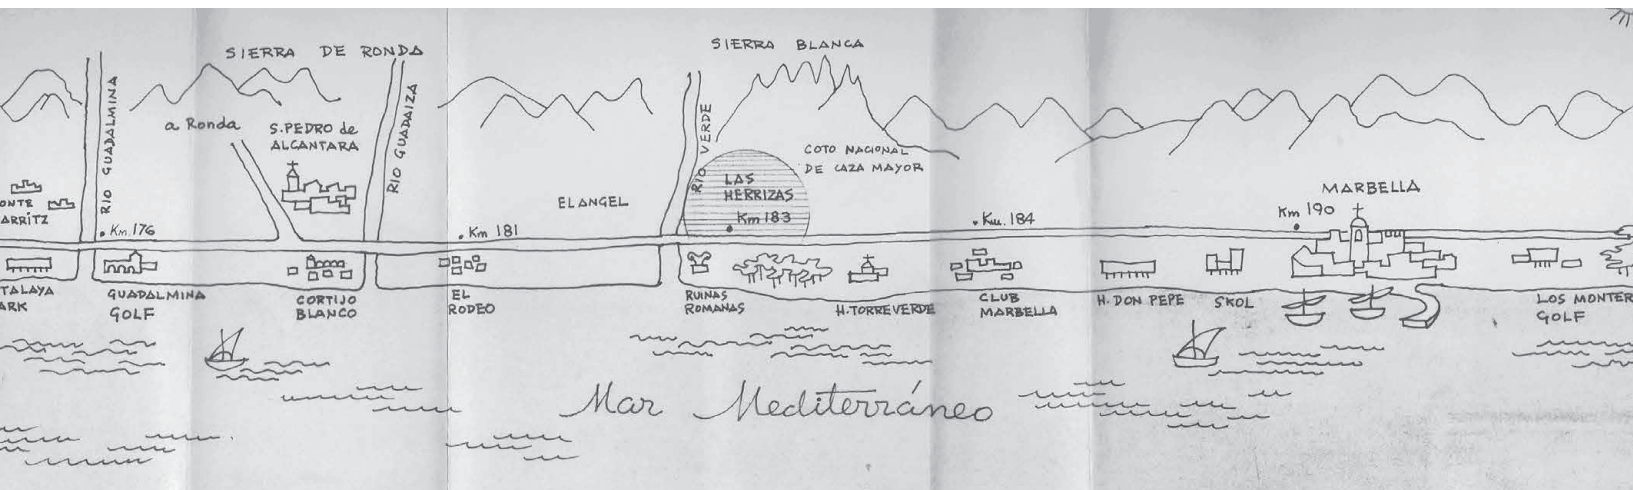 SIERRA DE RONDA
SIERRA BLANCA
RIO GUADALMINA
a Ronda
S.PEDRO de
ALCANTARA
RIO GUADAIZA
RIO VERDE
COTO NACIONAL
DE CAZA MAYOR
LAS
HERRIZAS
Km 183
EL ANGEL
MARBELLA
Km 190
ONTE
ARRITZ
Km. 176
Km 181
Km. 184
TALAYA
ARK
GUADALMINA
GOLF
CORTIJO
BLANCO
EL
RODEO
RUINAS
ROMANAS
H.TORREVERDE
CLUB
MARBELLA
H. DON PEPE
SKOL
LOS MONTER
GOLF
Mar Mediterráneo